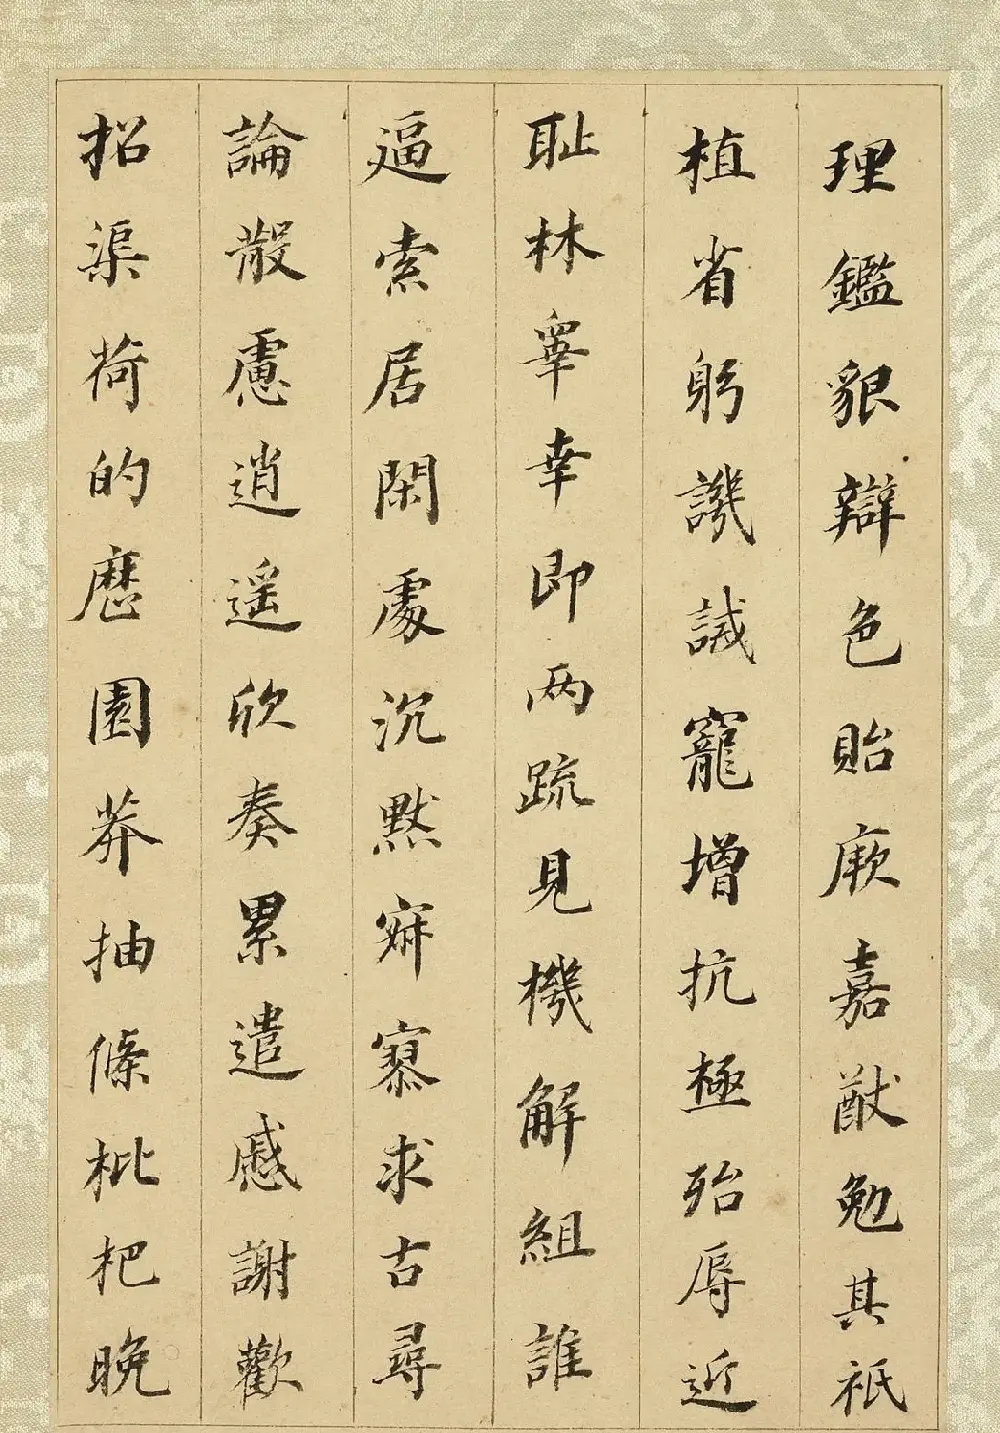 理鑑貌辯色貽厥嘉猷勉其祇
植省躬譏誡寵增抗極殆辱近
耻林睾幸即兩疏見機解組誰
逼索居閑處沉默寂寥求古尋
論散慮逍遙欣奏累遣慼謝歡
招渠荷的歷園莽抽條枇杷晚